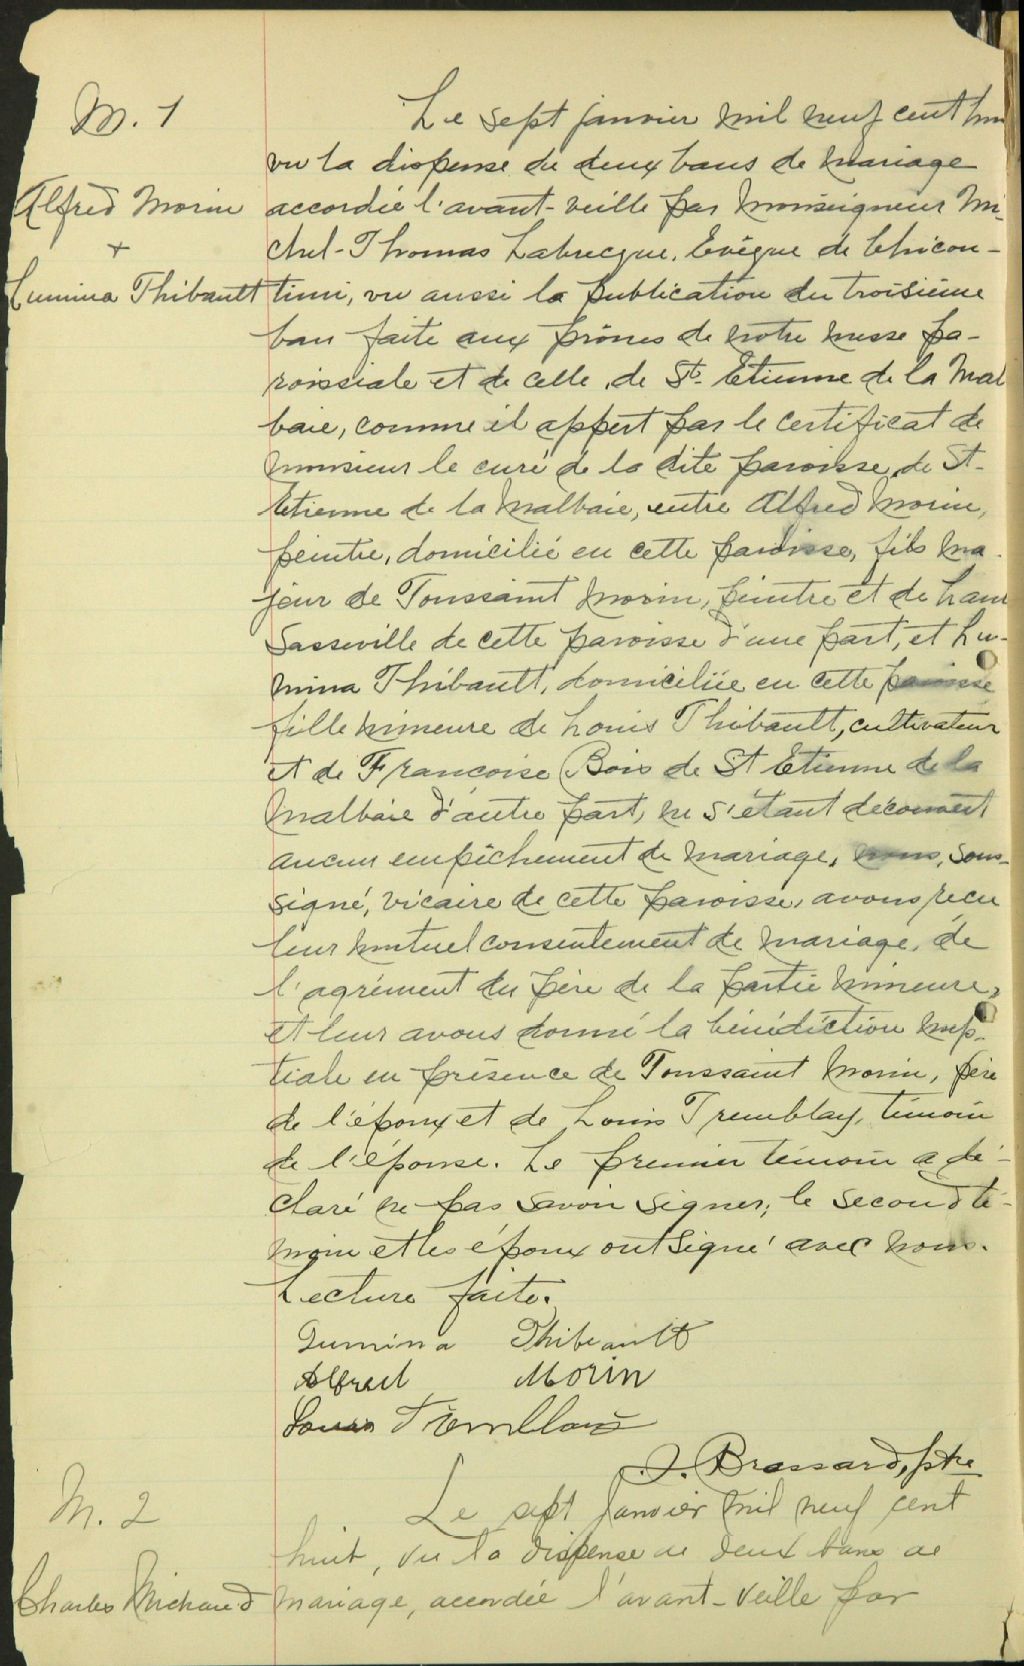 M. 1
Le sept janvier mil neuf cent hui
vu la dispense de deux bans de mariage
Alfred Morin
accordée l'avant-veille par Monseigneur Mi-
+
chel-Thomas Labrecque, Evêque de Chicou-
Lumina Thibault
timi, vu aussi la publication du troisième
ban faite aux prônes de notre messe pa-
roissiale et de celle de St-Etienne de la Mal
baie, comme il appert par le certificat de
monsieur le curé de la dite paroisse de St-
Etienne de la Malbaie, entre Alfred Morin,
peintre, domicilié en cette paroisse, fils ma-
jeur de Toussaint Morin, peintre et de
Sasseville de cette paroisse d'une part, et Lu-
mina Thibault, domiciliée en cette paroisse
fille mineure de Louis Thibault, cultivateur
et de Françoise Bois de St Etienne de la
Malbaie d'autre part, ne s'étant découvert
aucun empêchement de mariage, nous, sous-
signé, vicaire de cette paroisse, avons reçu
leur mutuel consentement de mariage, de
l'agrément du père de la partie mineure,
et leur avons donné la bénédiction nup-
tiale en présence de Toussaint Morin, père
de l'époux et de Louis Tremblay, témoin
de l'épouse. Le premier témoin a dé-
claré ne pas savoir signer; le second té-
moin et les époux ont signé avec nous.
Lecture faite.
Lumina Thibeault
Alfred Morin
Louis Tremblay
J. Brassard, ptre
M. 2
Le sept janvier mil neuf cent
huit, vu la dispense de deux bans de
Charles Michaud
mariage, accordée l'avant-veille par